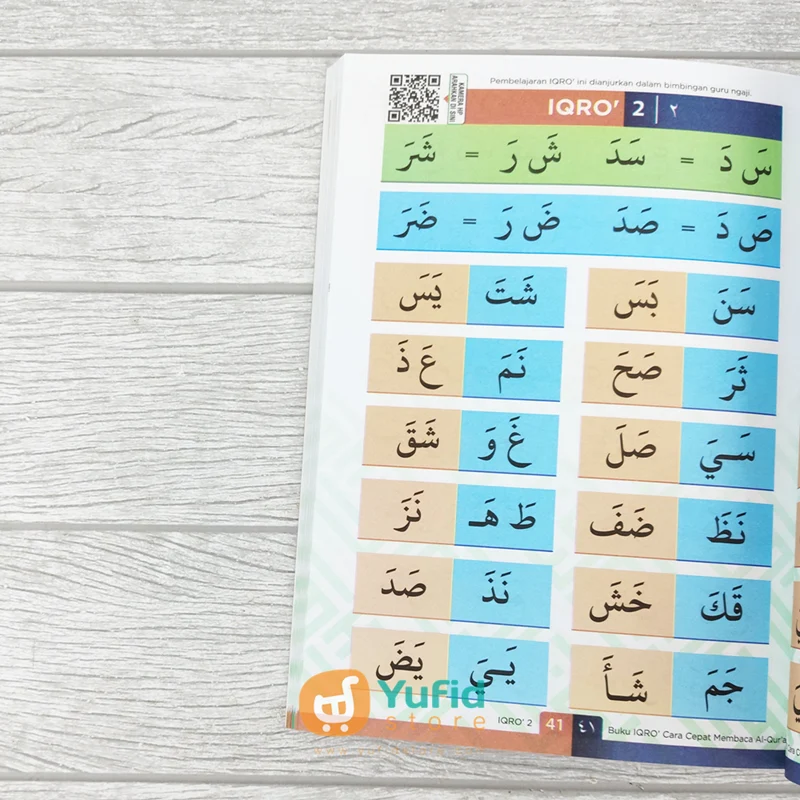 Pembelajaran IQRO' ini dianjurkan dalam bimbingan guru ngaji.
KAMERA HP
ARAHKAN DI SINI
IQRO' 2 | ٢
سَ دَ = سَدَ شَ رَ = شَرَ
صَ دَ = صَدَ ضَ رَ = ضَرَ
سَنَ بَسَ شَتَ يَسَ
ثَرَ صَحَ نَمَ عَ ذَ
سَيَ صَلَ غَ وَ شَقَ
نَظَ ضَفَ طَ هَـ نَزَ
قَكَ خَشَ نَذَ صَدَ
جَمَ شَأَ يَيَ يَضَ
Yufid
store
IQRO' 2 41 ٤١ Buku IQRO' Cara Cepat Membaca Al-Qur'a